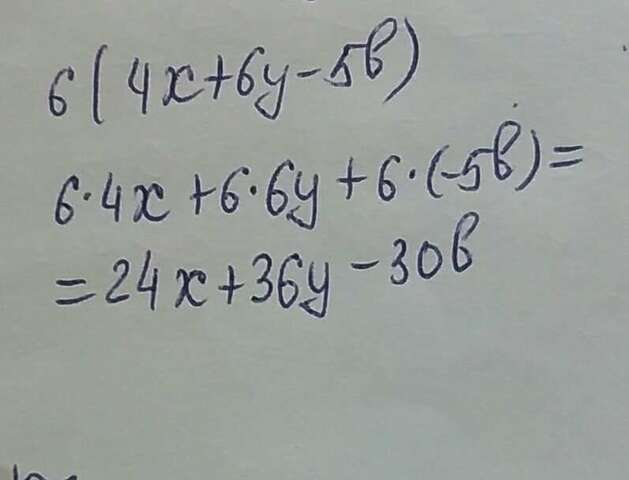 6(4x+6y-5b)
6·4x+6·6y+6·(-5b)=
=24x+36y-30b